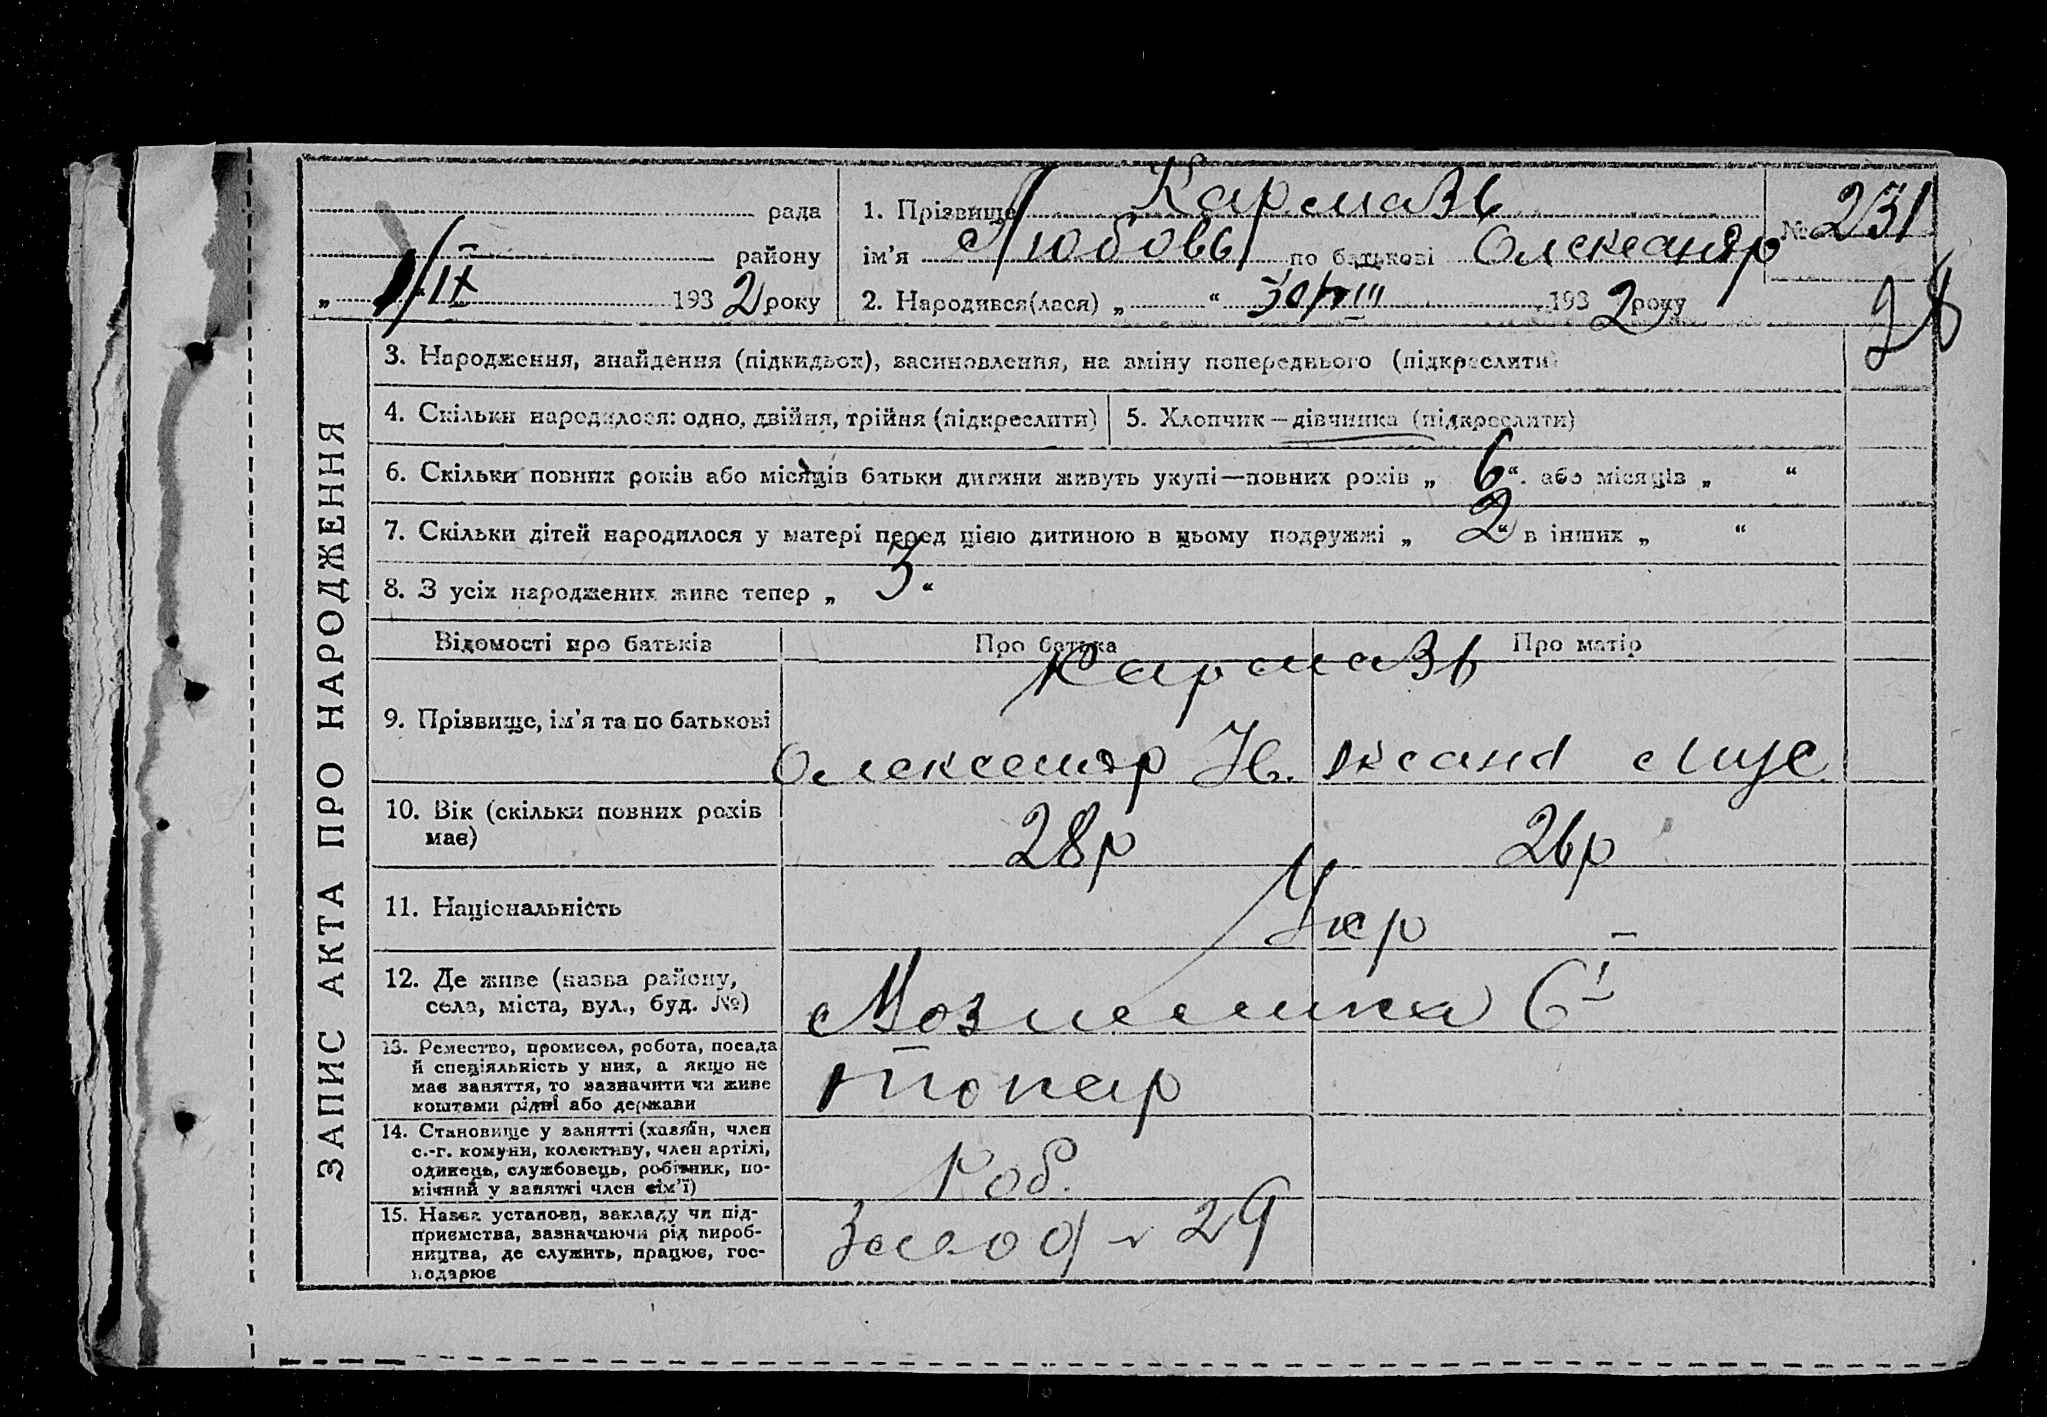 рада
району
„ 1/IX 1932 року
1. Прізвище Кармазь
ім'я Любовь по батькові Олександр
2. Народився(лася) „ “ 30/VIII 1932 року
№ 231
28
ЗАПИС АКТА ПРО НАРОДЖЕННЯ
3. Народження, знайдення (підкидьок), засиновлення, на зміну попереднього (підкреслити)
4. Скільки народилося: одно, двійня, трійня (підкреслити)
5. Хлопчик — дівчинка (підкреслити)
6. Скільки повних років або місяців батьки дитини живуть укупі—повних років „ 6 “. або місяців „ “
7. Скільки дітей народилося у матері перед цією дитиною в цьому подружжі „ 2 “ в інших „ “
8. З усіх народжених живе тепер „ 3 “
Відомості про батьків Про батька Про матір
Кармазь
9. Прізвище, ім'я та по батькові
Олександр Ів. Оксана
10. Вік (скільки повних років
має)
28р 26р
11. Національність
Укр –
12. Де живе (назва району,
села, міста, вул., буд. №)
Вознесенка
13. Ремество, промисел, робота, посада
й спеціяльність у них, а якщо не
має заняття, то зазначити чи живе
коштами рідні або держави
токар
14. Становище у занятті (хазяїн, член
с.-г. комуни, колективу, член артілі,
одинець, службовець, робітник, по-
мічний у занятті член сім'ї)
Роб.
15. Назва установи, закладу чи під-
приємства, зазначаючи рід вироб-
ництва, де служить, працює, гос-
подарює
Завод 29